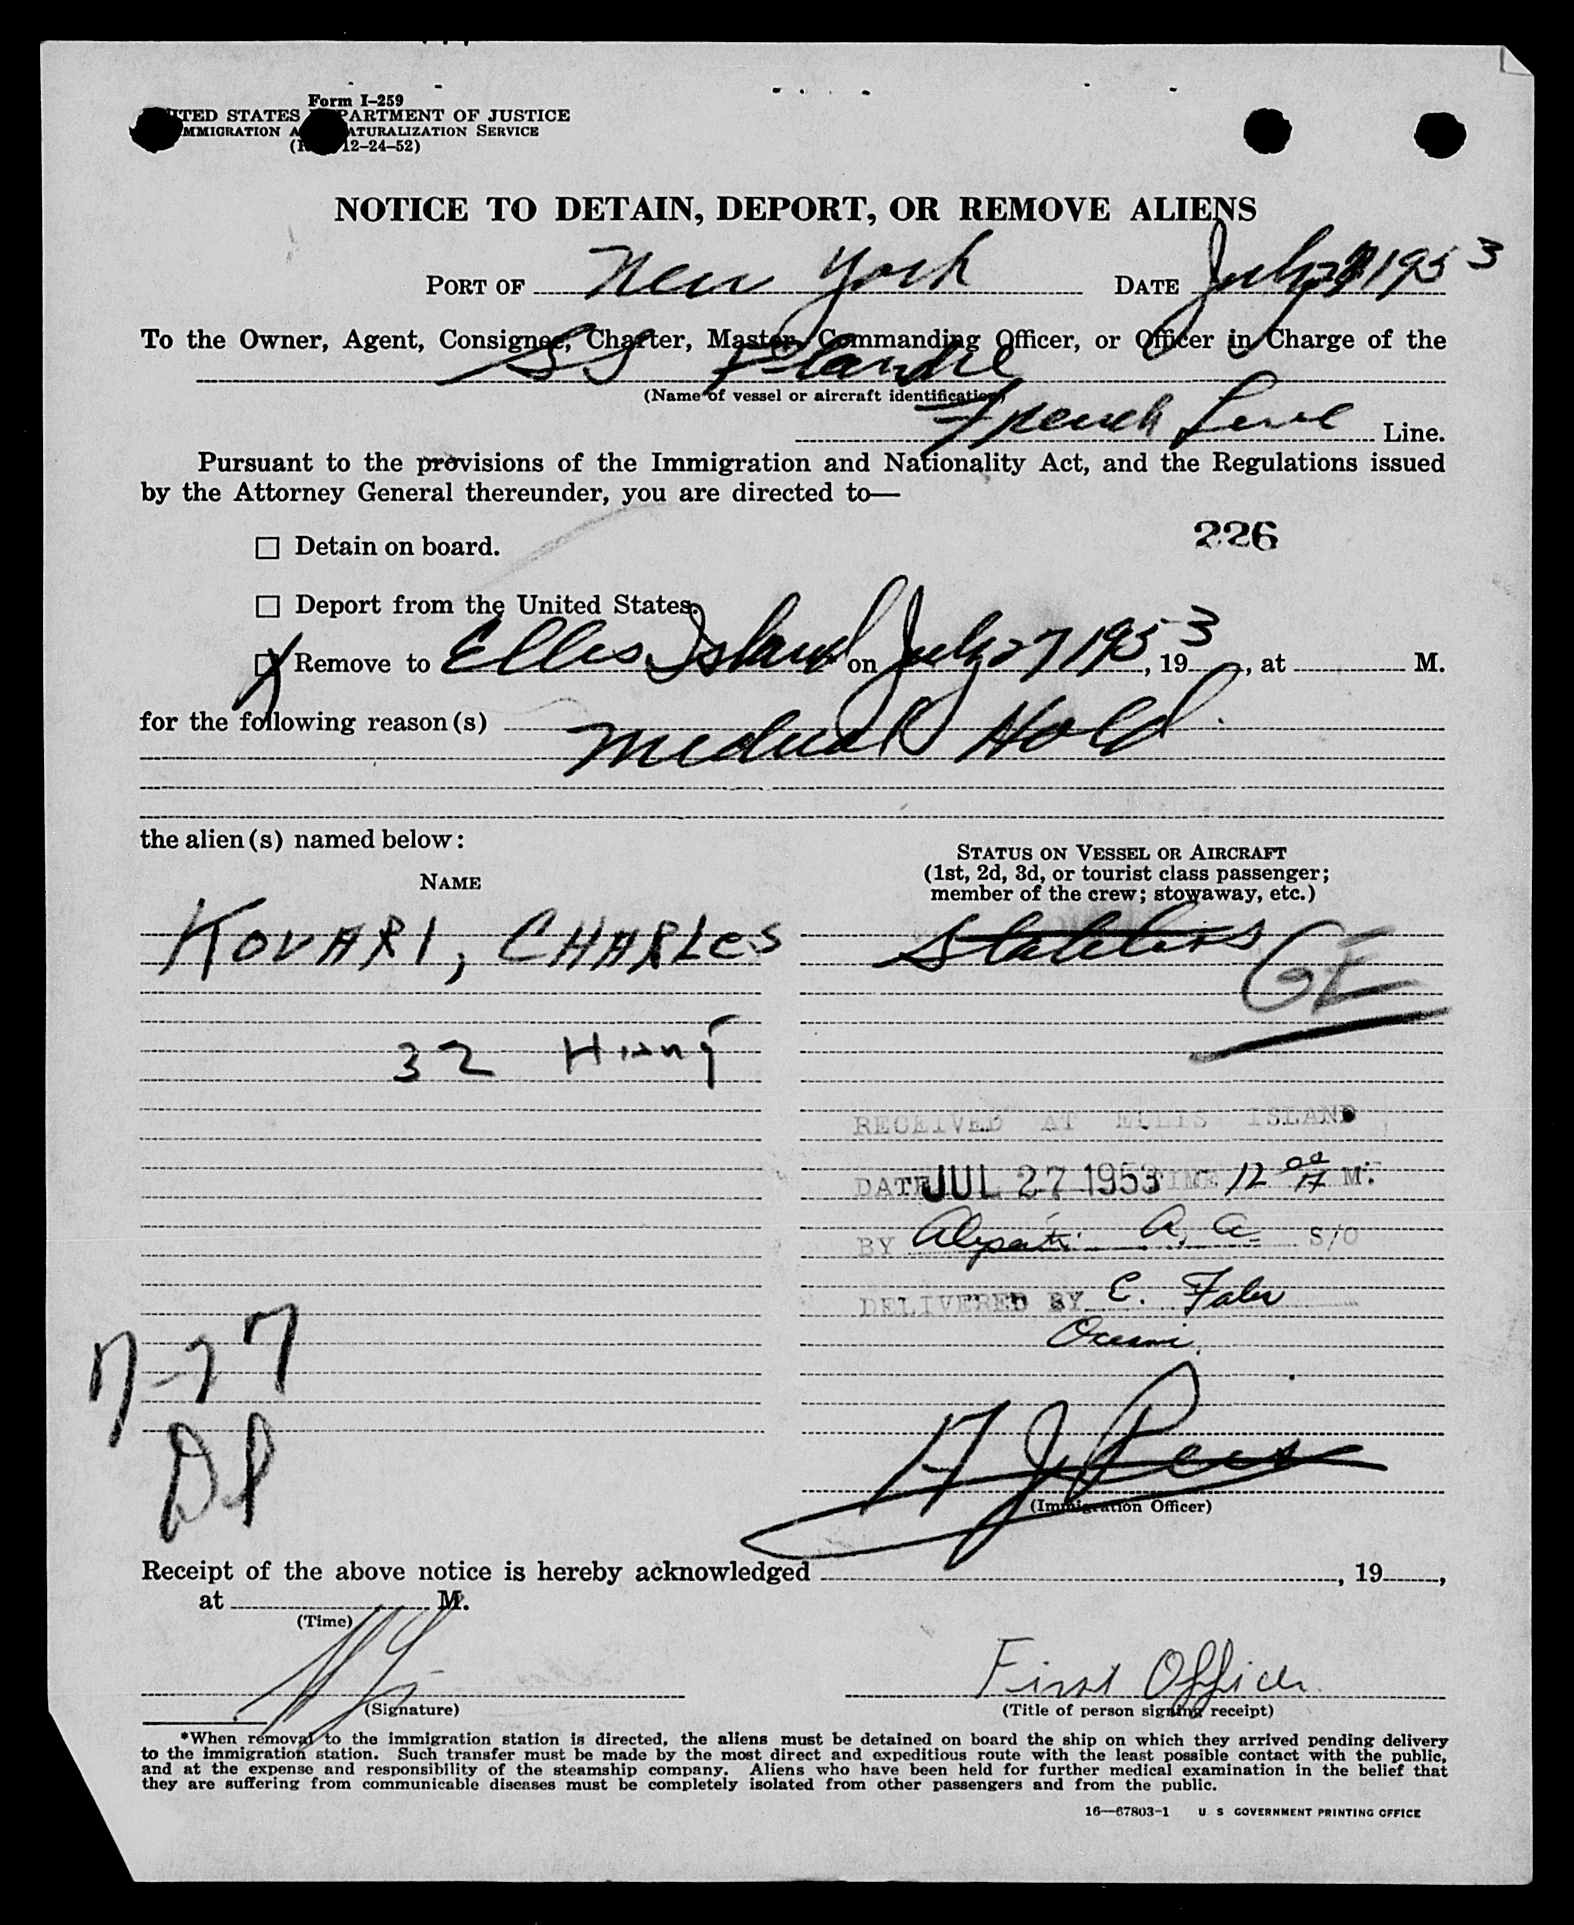 Form I-259
UNITED STATES DEPARTMENT OF JUSTICE
IMMIGRATION AND NATURALIZATION SERVICE
12-24-52)
NOTICE TO DETAIN, DEPORT, OR REMOVE ALIENS
PORT OF New York DATE July 27 1953
To the Owner, Agent, Consignee, Charter, Master, Commanding Officer, or Officer in Charge of the
SS Flandre
(Name of vessel or aircraft identification)
French Line Line.
Pursuant to the provisions of the Immigration and Nationality Act, and the Regulations issued
by the Attorney General thereunder, you are directed to—
226
☐ Detain on board.
☐ Deport from the United States.
☒ Remove to Ellis Island on July 27 1953, 19, at M.
for the following reason(s) Medical Hold
the alien(s) named below:
STATUS ON VESSEL OR AIRCRAFT
(1st, 2d, 3d, or tourist class passenger;
member of the crew; stowaway, etc.)
NAME
KOVARI, CHARLES Stateless
GE
32 Hung
RECEIVED AT ELLIS ISLAND
DATE JUL 27 1953 TIME 12 00 M.
BY A. A. S/O
DELIVERED BY C.
7-27
DP
(Immigration Officer)
Receipt of the above notice is hereby acknowledged , 19 ,
at M.
(Time)
First Officer
(Signature) (Title of person signing receipt)
*When removal to the immigration station is directed, the aliens must be detained on board the ship on which they arrived pending delivery
to the immigration station. Such transfer must be made by the most direct and expeditious route with the least possible contact with the public,
and at the expense and responsibility of the steamship company. Aliens who have been held for further medical examination in the belief that
they are suffering from communicable diseases must be completely isolated from other passengers and from the public.
16—67803-1 U S GOVERNMENT PRINTING OFFICE